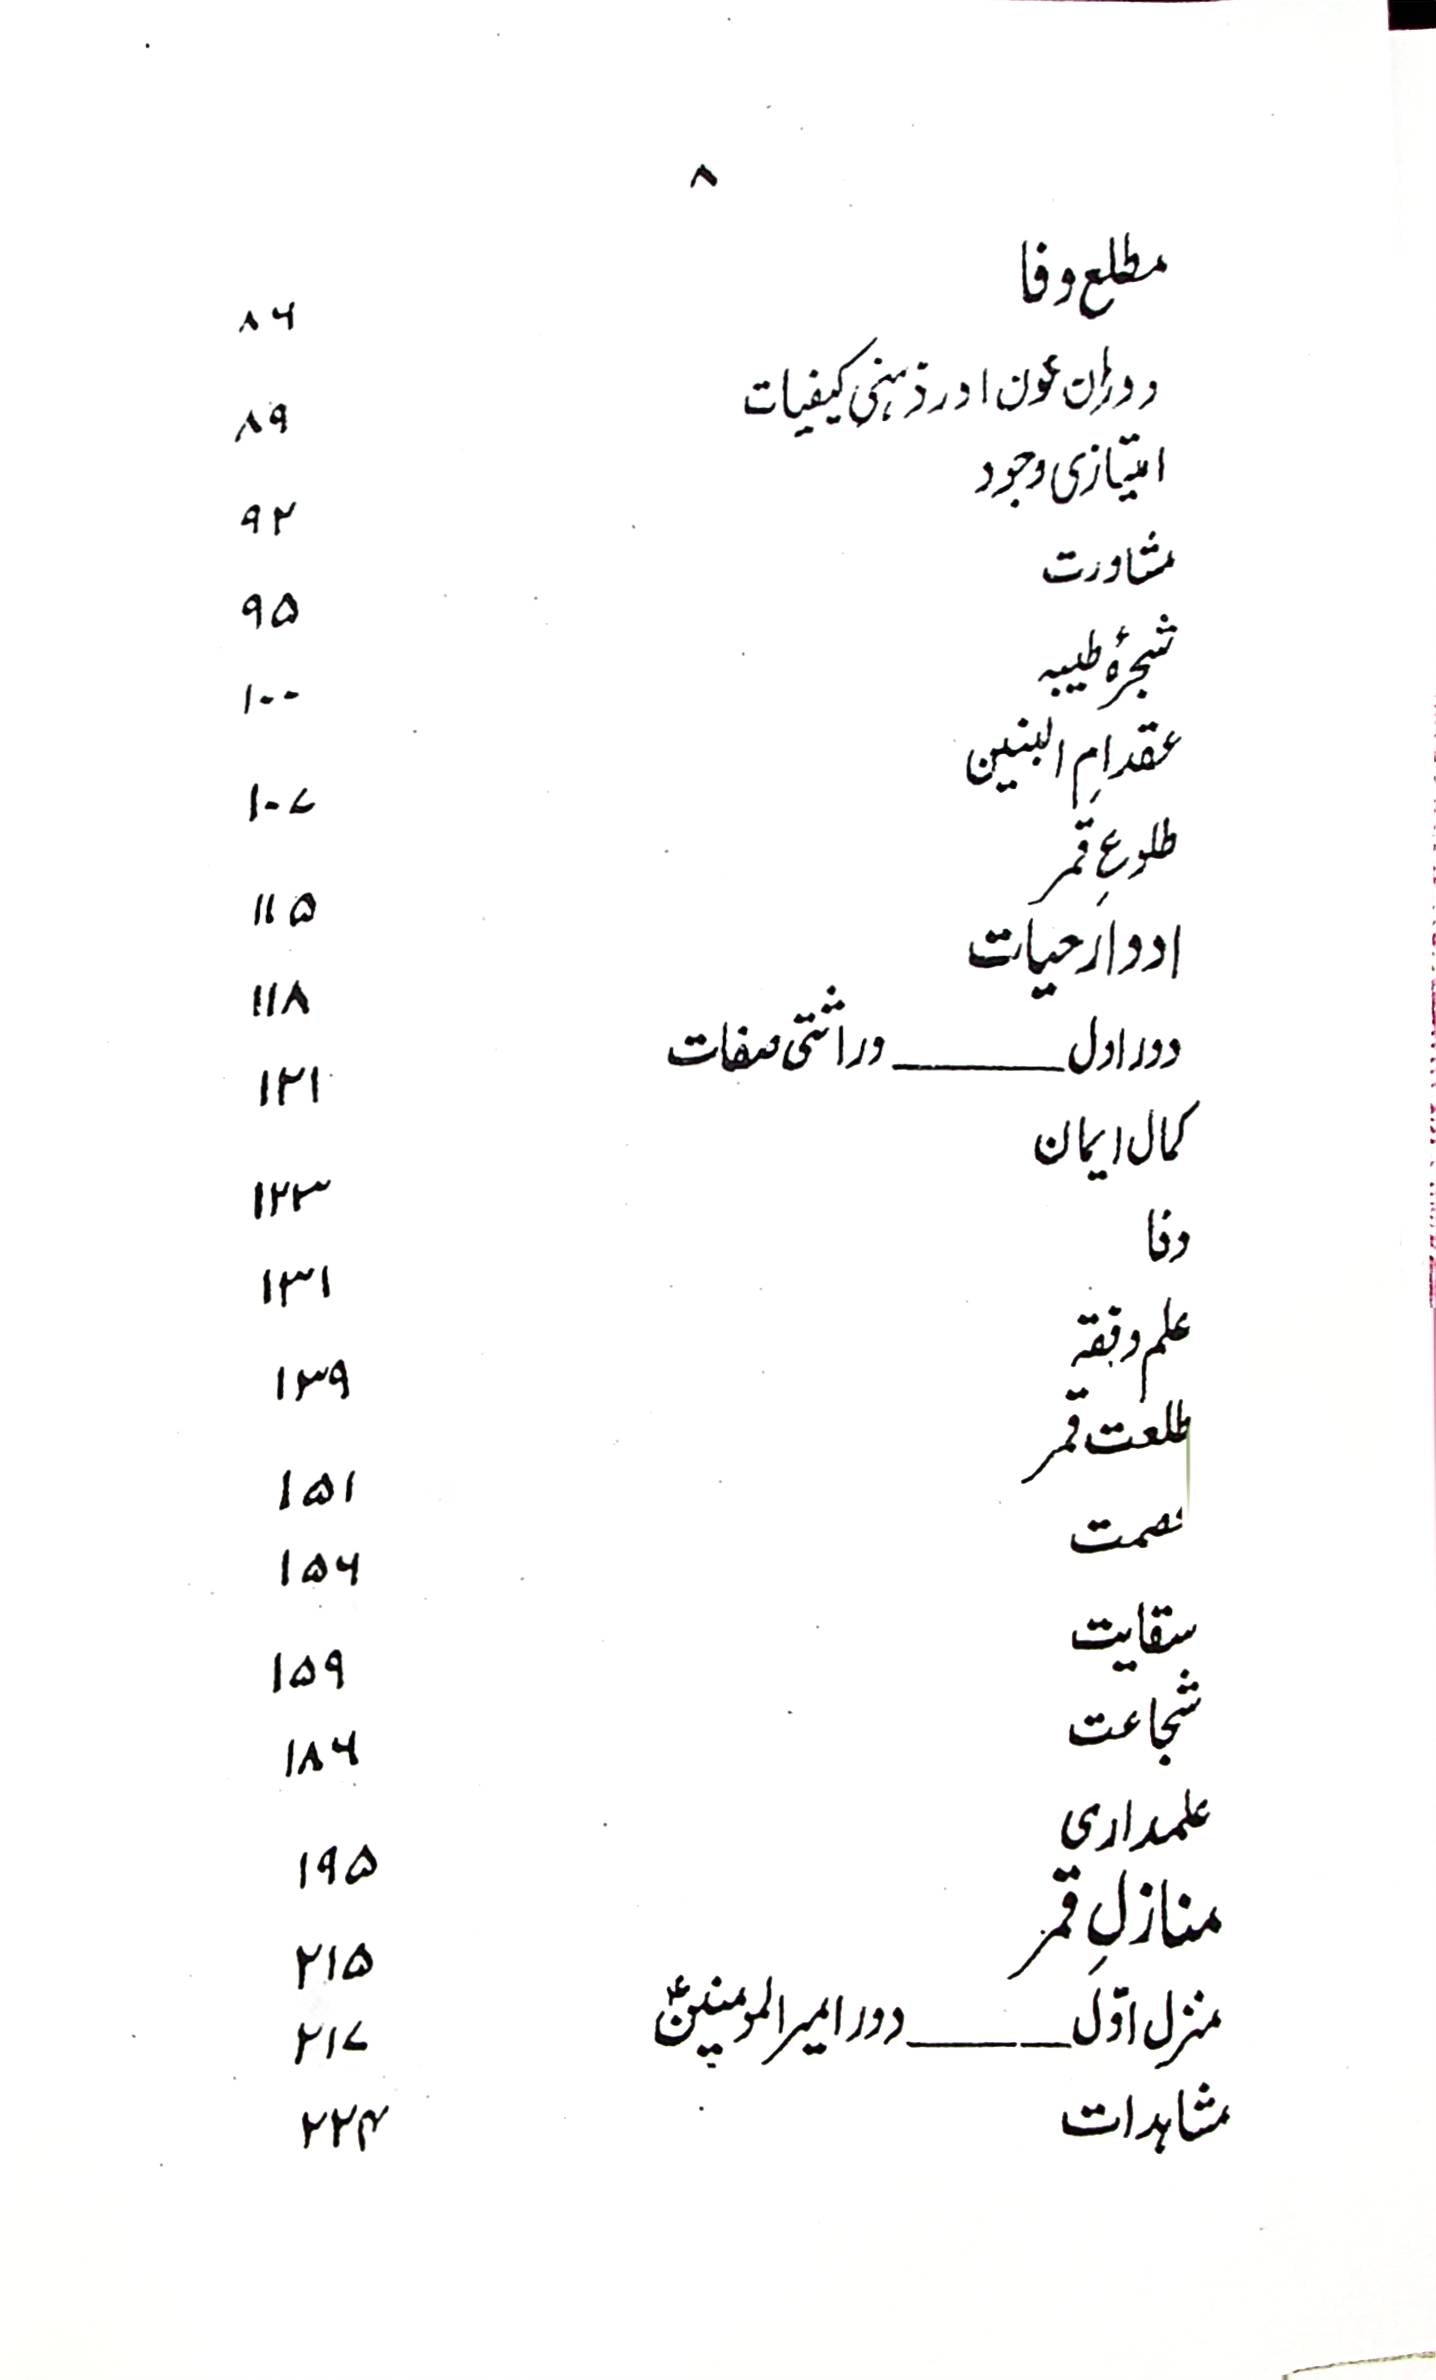 ۸
مطلع وفا ۸۶
دورانِ خون اور ذہنی کیفیات ۸۹
امتیازی وجود ۹۲
مشاورت ۹۵
شجرۂ طیبہ ۱۰۰
عقد امِ البنین ۱۰۷
طلوعِ قمر ۱۱۵
ادوارِ حیات ۱۱۸
دور اول ــــــ وراثتی صفات ۱۲۱
کمال ایمان ۱۲۳
وفا ۱۳۱
علم و فقہ ۱۳۹
طلعت قمر ۱۵۱
عصمت ۱۵۶
سقایت ۱۵۹
شجاعت ۱۸۶
علمداری ۱۹۵
منازلِ قمر ۲۱۵
منزلِ اوّل ــــــ دور امیر المومنینؑ ۲۱۷
مشاہدات ۲۲۴